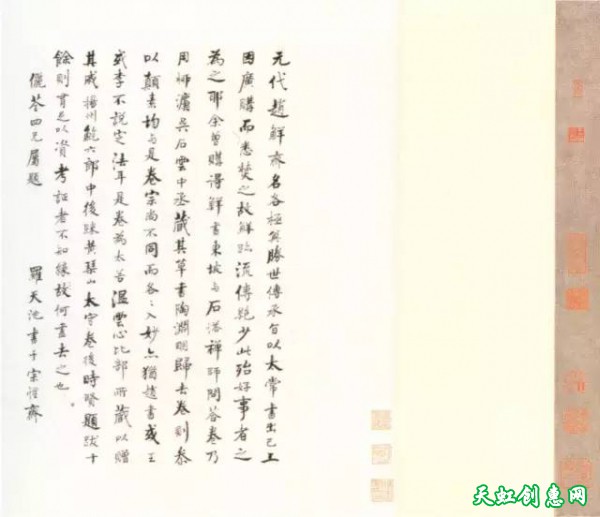 元代趙鮮齊名各極其勝世傳承旨以太常書出己上
因廣購而悉焚之故鮮跡流傳絕少此殆好事者之
為之耶余曾購得鮮書東坡与石塔禅師問答卷乃
同師吳石雲中丞藏其草書陶淵明歸去卷則参
以顛素均与是卷宗尚不同而各々入妙亦猶趙書或王
或李不說定法耳是卷為太善温雲心比部所藏以贈
其戚揚州鮑六郎中後黃琴山太守卷後時賢題跋十
餘則實足以資考証者不知緣故何盡去之也。
儷荃四兄屬題 羅天池書于宗齋
天虹创惠网